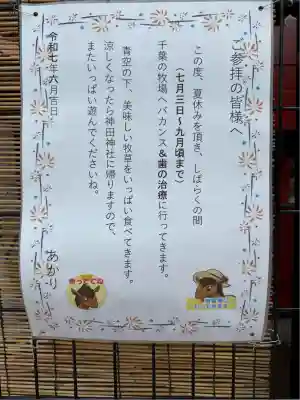 ご参拝の皆様へ
この度、夏休みを頂き、しばらくの間
(七月三日～九月頃まで)
千葉の牧場へバカンス＆歯の治療に行ってきます。
青空の下、美味しい牧草をいっぱい食べてきます。
涼しくなったら神田神社に帰りますので、
またいっぱい遊んでくださいね。
あかり
令和七年六月吉日
待っててね